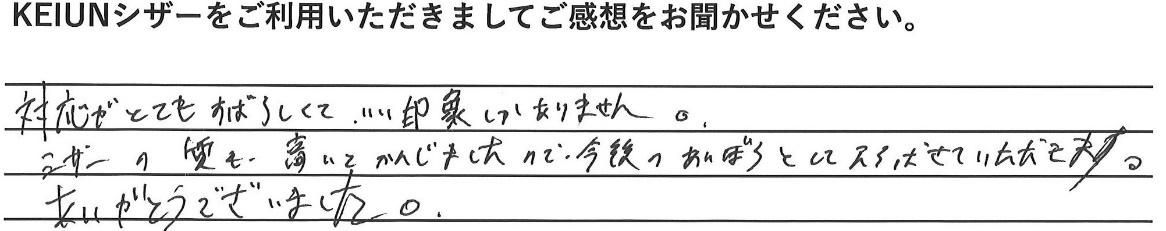 KEIUNシザーをご利用いただきましてご感想をお聞かせください。
対応がとてもすばらしくて、いい印象しかありません。
シザーの質も、高いとかんじましたので、今後のあいぼうとして
させていただきます。
ありがとうございました。